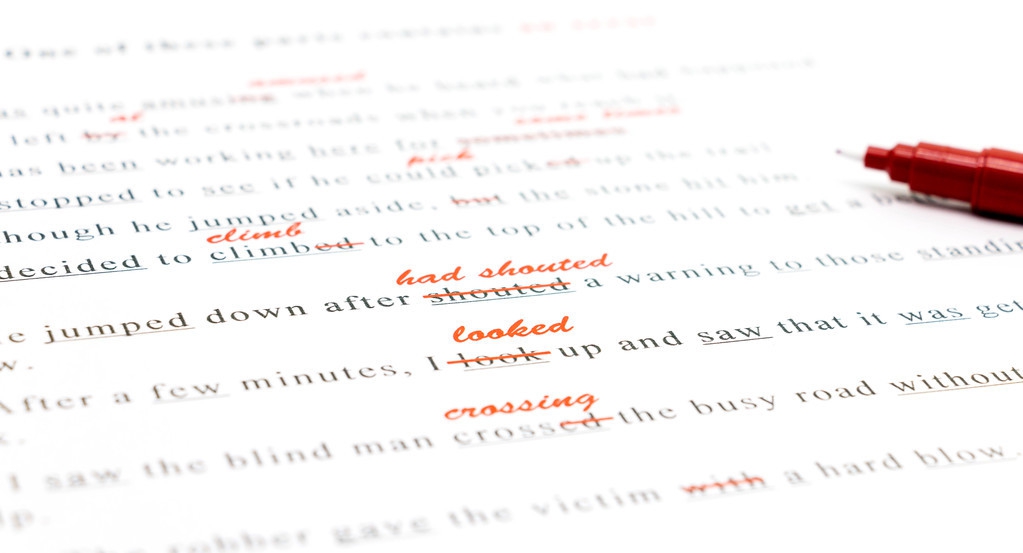 One of these parts contains
amused
as quite amusing when he heard what had happened
at
left by the crossroads when you reach it
some times
has been working here for sometimes
pick
stopped to see if he could picked up the trail
though he jumped aside, but the stone hit him
climb
decided to climbed to the top of the hill to get a
had shouted
e jumped down after shouted a warning to those standin
w.
looked
After a few minutes, I look up and saw that it was get
crossing
I saw the blind man crossed the busy road without
The robber gave the victim with a hard blow.